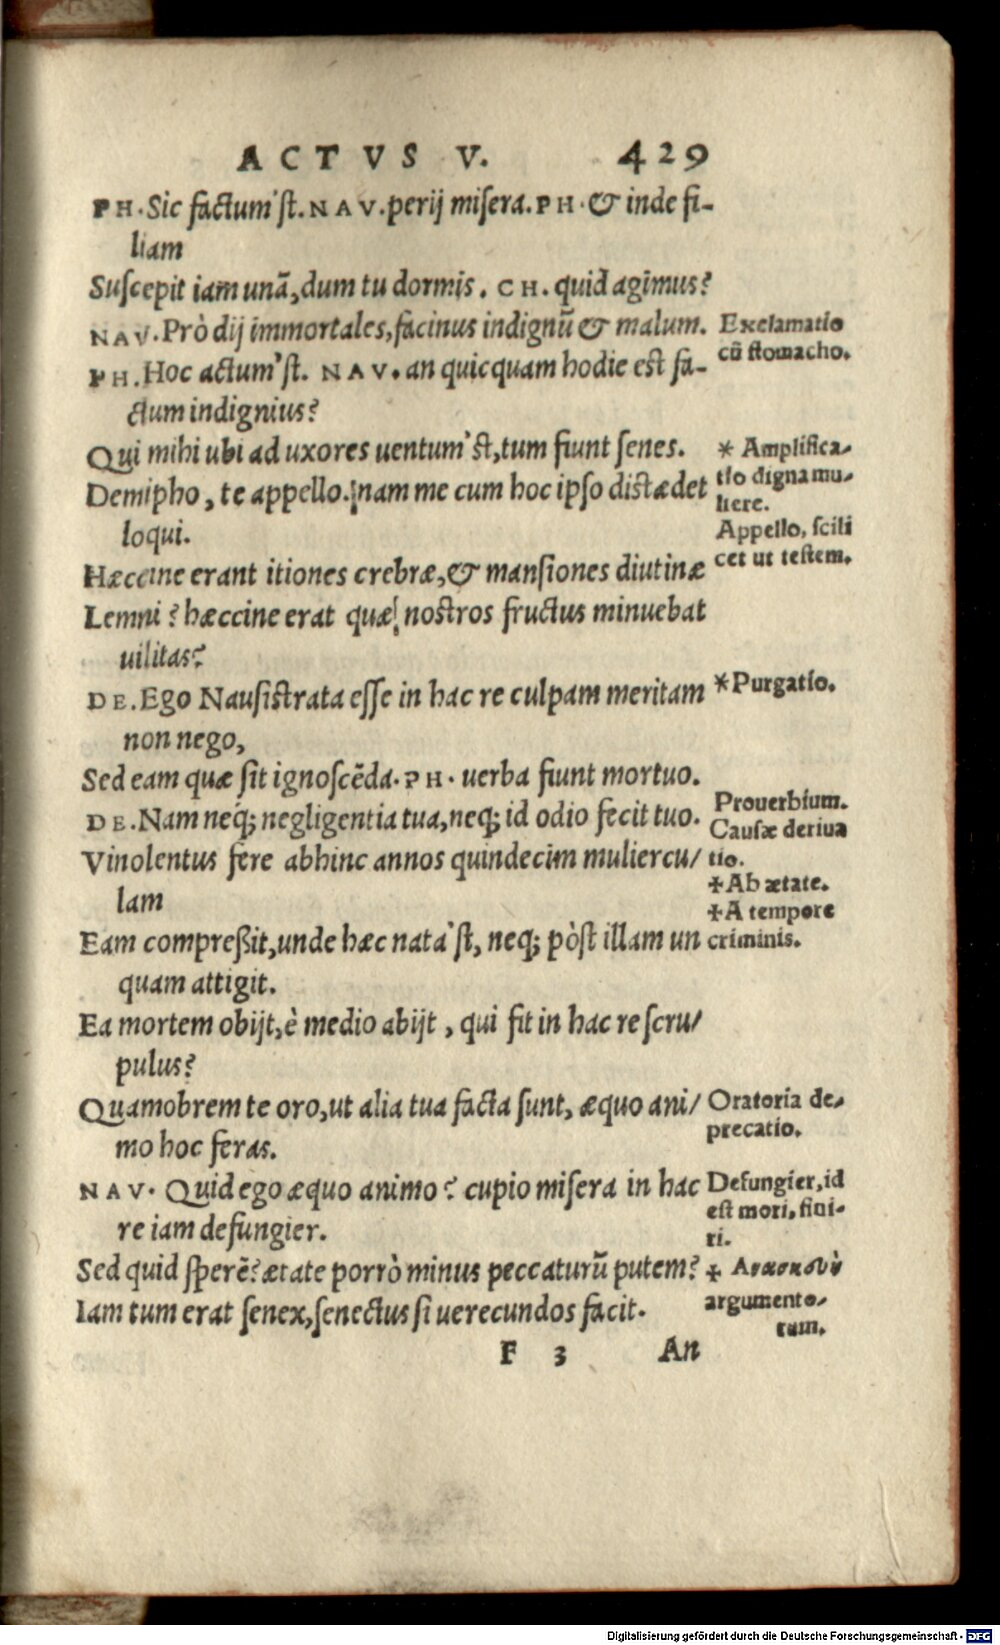 ACTVS V. 429
PH. Sic factum'st. NAV. perij misera. PH. & inde fi-
liam
Suscepit iam unā, dum tu dormis. CH. quid agimus?
NAV. Prò dij immortales, facinus indignū & malum.
Exclamatio
cū stomacho.
PH. Hoc actum'st. NAV. an quicquam hodie est fa-
ctum indignius?
Qui mihi ubi ad uxores uentum'st, tum fiunt senes.
* Amplifica-
tio digna mu-
liere.
Demipho, te appello. nam me cum hoc ipso distædet
loqui.
Appello, scili
cet ut testem.
Hæccine erant itiones crebræ, & mansiones diutinæ
Lemni? hæccine erat quæ nostros fructus minuebat
uilitas?
DE. Ego Nausistrata esse in hac re culpam meritam
non nego,
* Purgatio.
Sed eam quæ sit ignoscēda. PH. uerba fiunt mortuo.
Prouerbium.
DE. Nam neq; negligentia tua, neq; id odio fecit tuo.
Causæ deriua
tio.
Vinolentus fere abhinc annos quindecim muliercu/
lam
+ Ab ætate.
+ A tempore
criminis.
Eam compreßit, unde hæc nata'st, neq; pòst illam un
quam attigit.
Ea mortem obijt, è medio abijt, qui fit in hac re scru/
pulus?
Quamobrem te oro, ut alia tua facta sunt, æquo ani/
mo hoc feras.
Oratoria de-
precatio.
NAV. Quid ego æquo animo? cupio misera in hac
re iam defungier.
Defungier, id
est mori, fini-
ri.
Sed quid sperē? ætate porrò minus peccaturū putem?
Iam tum erat senex, senectus si uerecundos facit.
+
argumento-
rum.
F 3 An
Digitalisierung gefördert durch die Deutsche Forschungsgemeinschaft - DFG